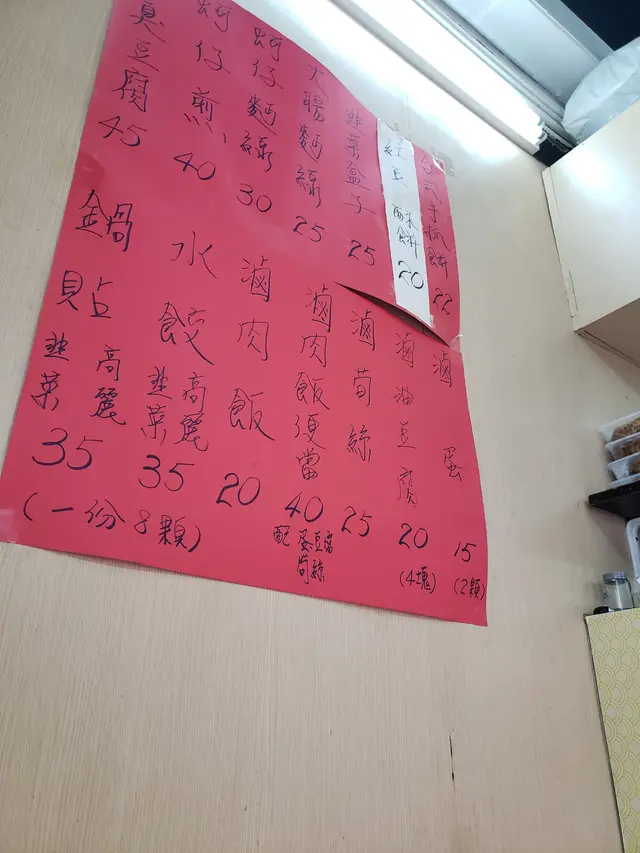 台式手抓餅 22
紅豆酥餅 20
韭菜盒子 25
大腸麵線 25
蚵仔麵線 30
蚵仔煎 40
臭豆腐 45
滷蛋 15
(2顆)
滷油豆腐 20
(4塊)
滷筍絲 25
滷肉飯便當 40
配蛋豆腐
筍絲
滷肉飯 20
水餃
高麗
韭菜
35
鍋貼
高麗
韭菜
35
(一份8顆)